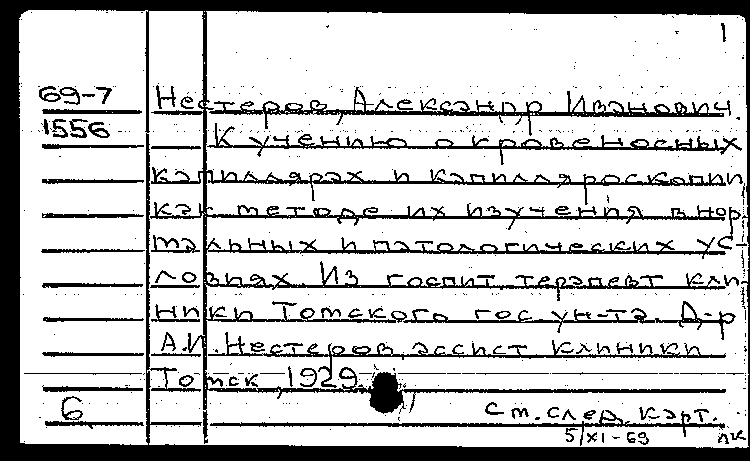 1
69-7 Нестеров, Александр Иванович.
1556 К учению о кровеносных
капиллярах и капилляроскопии
как методе их изучения в нор
мальных и патологических ус-
ловиях. Из госпит. терапевт. кли-
ники Томского гос. ун-та. Д-р
А.И. Нестеров, ассист. клиники
Томск, 1929.
6 См. след. карт.
5/XI-69 лк